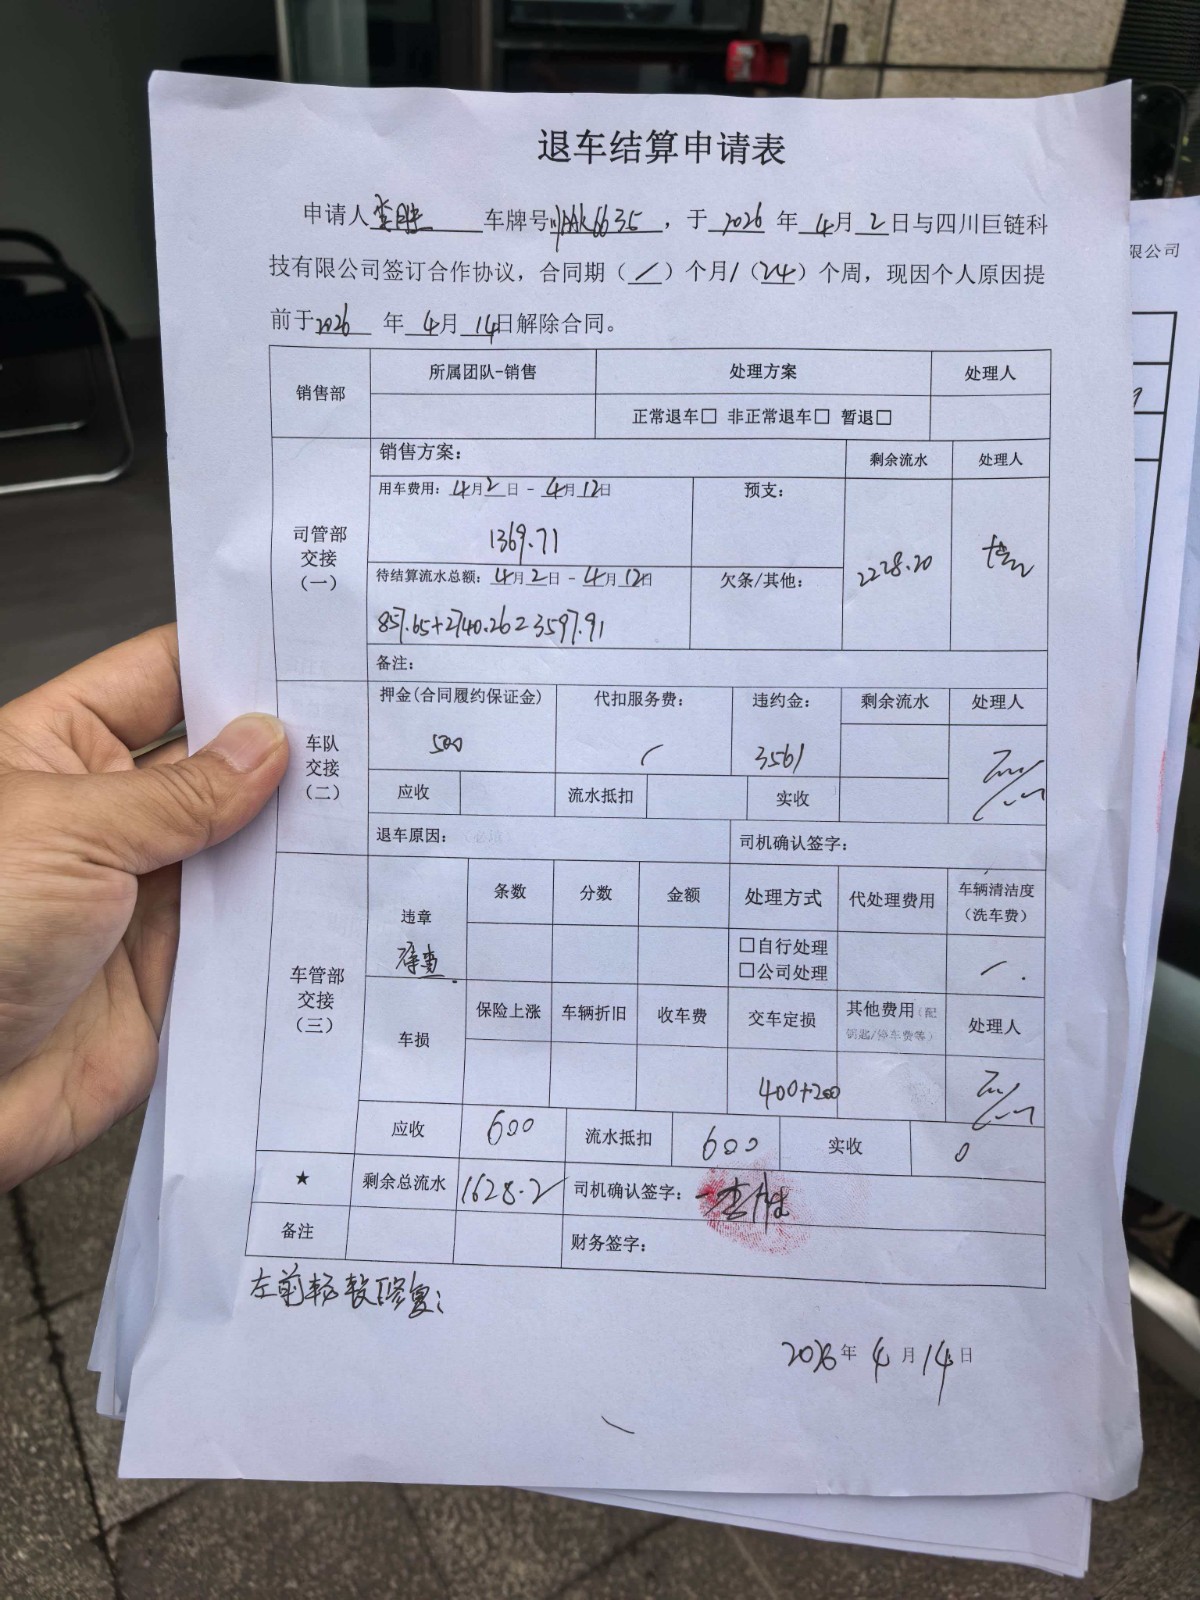 退车结算申请表
申请人李胜 车牌号川AAK6635，于2026年4月2日与四川巨链科
技有限公司签订合作协议，合同期（/）个月/（24）个周，现因个人原因提
前于2026年4月14日解除合同。
销售部 所属团队-销售 处理方案 处理人
正常退车□ 非正常退车□ 暂退□
司管部交接（一） 销售方案： 剩余流水 处理人
用车费用：4月2日-4月12日 预支：
1369.71
2228.20
待结算流水总额：4月2日-4月12日 欠条/其他：
857.65+2740.26=3597.91
备注：
车队交接（二） 押金(合同履约保证金) 代扣服务费： 违约金： 剩余流水 处理人
500 / 3561
应收 流水抵扣 实收
退车原因： 司机确认签字：
车管部交接（三） 违章 条数 分数 金额 处理方式 代处理费用 车辆清洁度（洗车费）
待查. □自行处理 □公司处理 /.
车损 保险上涨 车辆折旧 收车费 交车定损 其他费用（配钥匙/停车费等） 处理人
400+200
应收 600 流水抵扣 600 实收 0
★ 剩余总流水 1628.2 司机确认签字：李胜
备注 财务签字：
左前杨 修复；
2026年4月14日
限公司